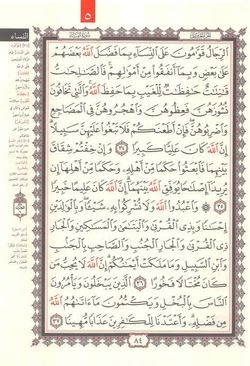 ٥
النساء
الرِّجَالُ قَوَّٰمُونَ عَلَى النِّسَاءِ بِمَا فَضَّلَ اللَّهُ بَعْضَهُمْ
عَلَىٰ بَعْضٍ وَبِمَا أَنفَقُوا مِنْ أَمْوَٰلِهِمْ فَالصَّٰلِحَٰتُ
قَٰنِتَٰتٌ حَٰفِظَٰتٌ لِّلْغَيْبِ بِمَا حَفِظَ اللَّهُ وَالَّٰتِي تَخَافُونَ
نُشُوزَهُنَّ فَعِظُوهُنَّ وَاهْجُرُوهُنَّ فِي الْمَضَاجِعِ
وَاضْرِبُوهُنَّ فَإِنْ أَطَعْنَكُمْ فَلَا تَبْغُوا عَلَيْهِنَّ سَبِيلًا
إِنَّ اللَّهَ كَانَ عَلِيًّا كَبِيرًا ٣٤ وَإِنْ خِفْتُمْ شِقَاقَ
بَيْنِهِمَا فَابْعَثُوا حَكَمًا مِّنْ أَهْلِهِ وَحَكَمًا مِّنْ أَهْلِهَا إِن
يُرِيدَا إِصْلَٰحًا يُوَفِّقِ اللَّهُ بَيْنَهُمَا إِنَّ اللَّهَ كَانَ عَلِيمًا خَبِيرًا
٣٥ وَاعْبُدُوا اللَّهَ وَلَا تُشْرِكُوا بِهِ شَيْئًا وَبِالْوَٰلِدَيْنِ
إِحْسَٰنًا وَبِذِي الْقُرْبَىٰ وَالْيَتَٰمَىٰ وَالْمَسَٰكِينِ وَالْجَارِ
ذِي الْقُرْبَىٰ وَالْجَارِ الْجُنُبِ وَالصَّاحِبِ بِالْجَنبِ
وَابْنِ السَّبِيلِ وَمَا مَلَكَتْ أَيْمَٰنُكُمْ إِنَّ اللَّهَ لَا يُحِبُّ مَن
كَانَ مُخْتَالًا فَخُورًا ٣٦ الَّذِينَ يَبْخَلُونَ وَيَأْمُرُونَ
النَّاسَ بِالْبُخْلِ وَيَكْتُمُونَ مَا ءَاتَىٰهُمُ اللَّهُ
مِن فَضْلِهِ وَأَعْتَدْنَا لِلْكَٰفِرِينَ عَذَابًا مُّهِينًا ٣٧
٨٤